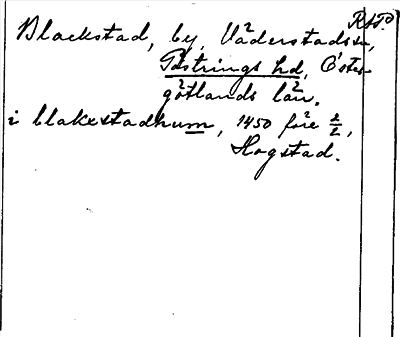 Blackstad, by, Väderstads sn,
Göstrings hd, Öster-
götlands län.
i blakestadhum, 1450 före 2/2,
Hogstad.